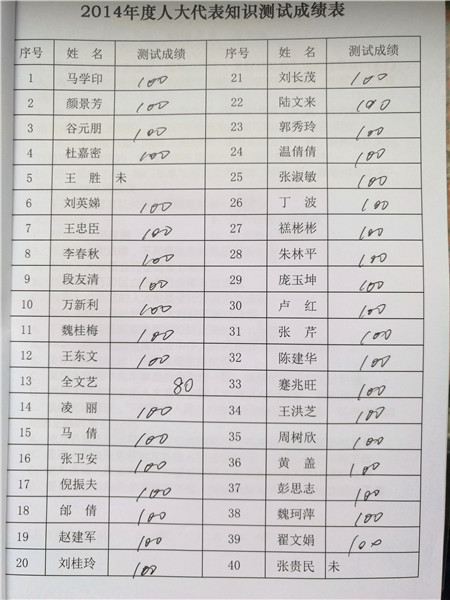 2014年度人大代表知识测试成绩表
序号 姓 名 测试成绩 序号 姓 名 测试成绩
1 马学印 100 21 刘长茂 100
2 颜景芳 100 22 陆文来 100
3 谷元朋 100 23 郭秀玲 100
4 杜嘉密 100 24 温倩倩 100
5 王 胜 未 25 张淑敏 100
6 刘英娣 100 26 丁 波 100
7 王忠臣 100 27 禚彬彬 100
8 李春秋 100 28 朱林平 100
9 段友清 100 29 庞玉坤 100
10 万新利 100 30 卢 红 100
11 魏桂梅 100 31 张 芹 100
12 王东文 100 32 陈建华 100
13 全文艺 80 33 蹇兆旺 100
14 凌 丽 100 34 王洪芝 100
15 马 倩 100 35 周树欣 100
16 张卫安 100 36 黄 盖 100
17 倪振夫 100 37 彭思志 100
18 邰 倩 100 38 魏珂萍 100
19 赵建军 100 39 翟文娟 100
20 刘桂玲 100 40 张贵民 未